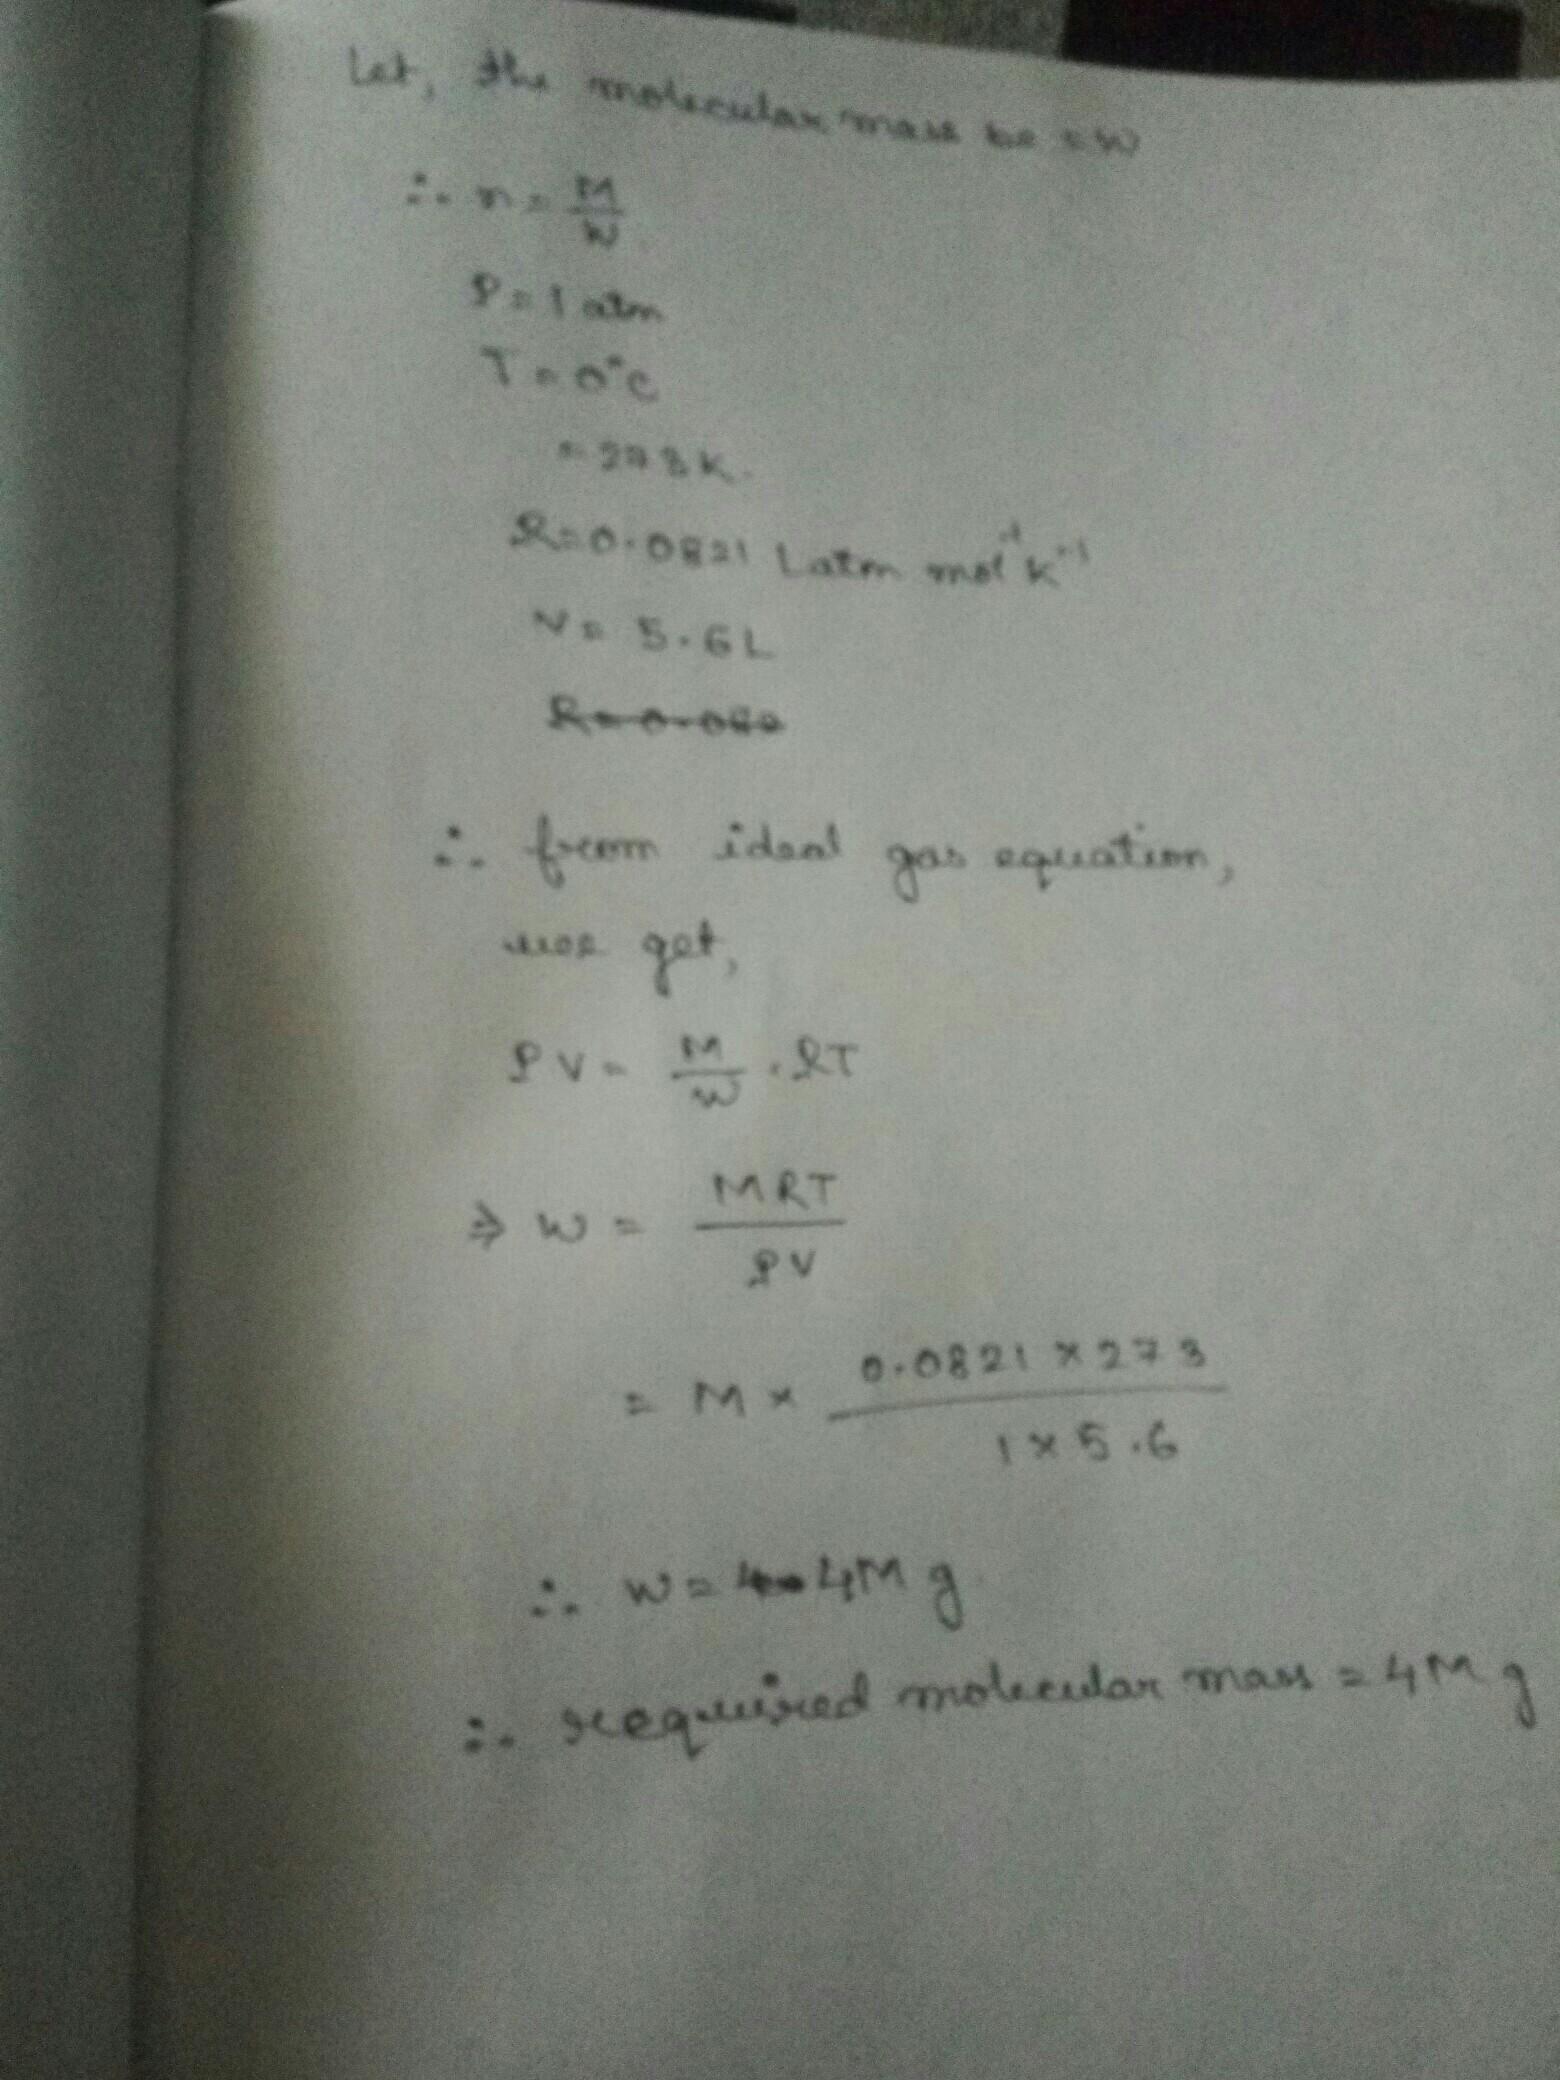 Let, the molecular mass be = W
∴ n = M/W
P = 1 atm
T = 0°C
= 273 K.
R = 0.0821 L atm mol⁻¹ K⁻¹
V = 5.6 L
R = 0.082
∴ from ideal gas equation,
we get,
PV = M/W . RT
⇒ W = MRT/PV
= M × 0.0821 × 273 / 1 × 5.6
∴ W = 4M g
∴ required molecular mass = 4M g